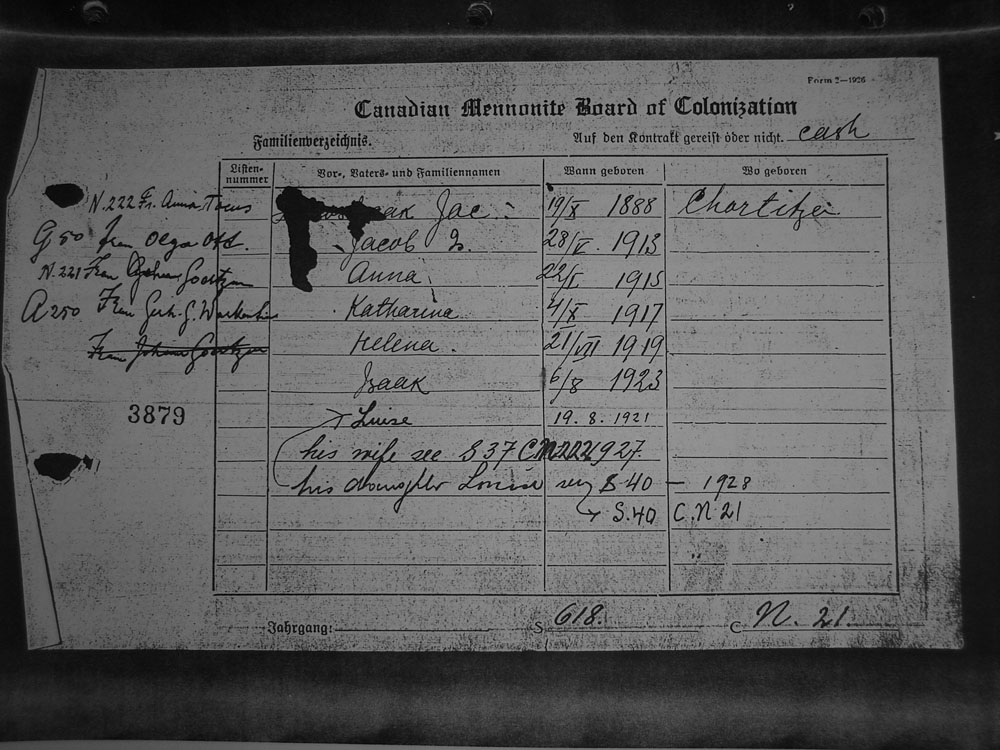 Form 2—1926
Canadian Mennonite Board of Colonization
Familienverzeichnis. Auf den Kontrakt gereist oder nicht. cash
Listen-nummer Vor-, Vaters- und Familiennamen Wann geboren Wo geboren
N.222 Fr. Anna Jac : 19/X 1888 Chortitza
G 50 Frau Olga Ott. Jacob 28/V. 1913
N.221 Frau Goertzen Anna 22/I. 1915
A 250 Frau Gerh. G. Warkentin Katharina 4/X 1917
Frau Johann Goertzen Helena. 21/VII 1919
Isaak 6/8 1923
3879
Luise 19.8.1921
his wife see S 37 CN 222 1927
his daughter Louise see S 40 — 1928
S.40 C.N 21
Jahrgang: S. 618. C N. 21.